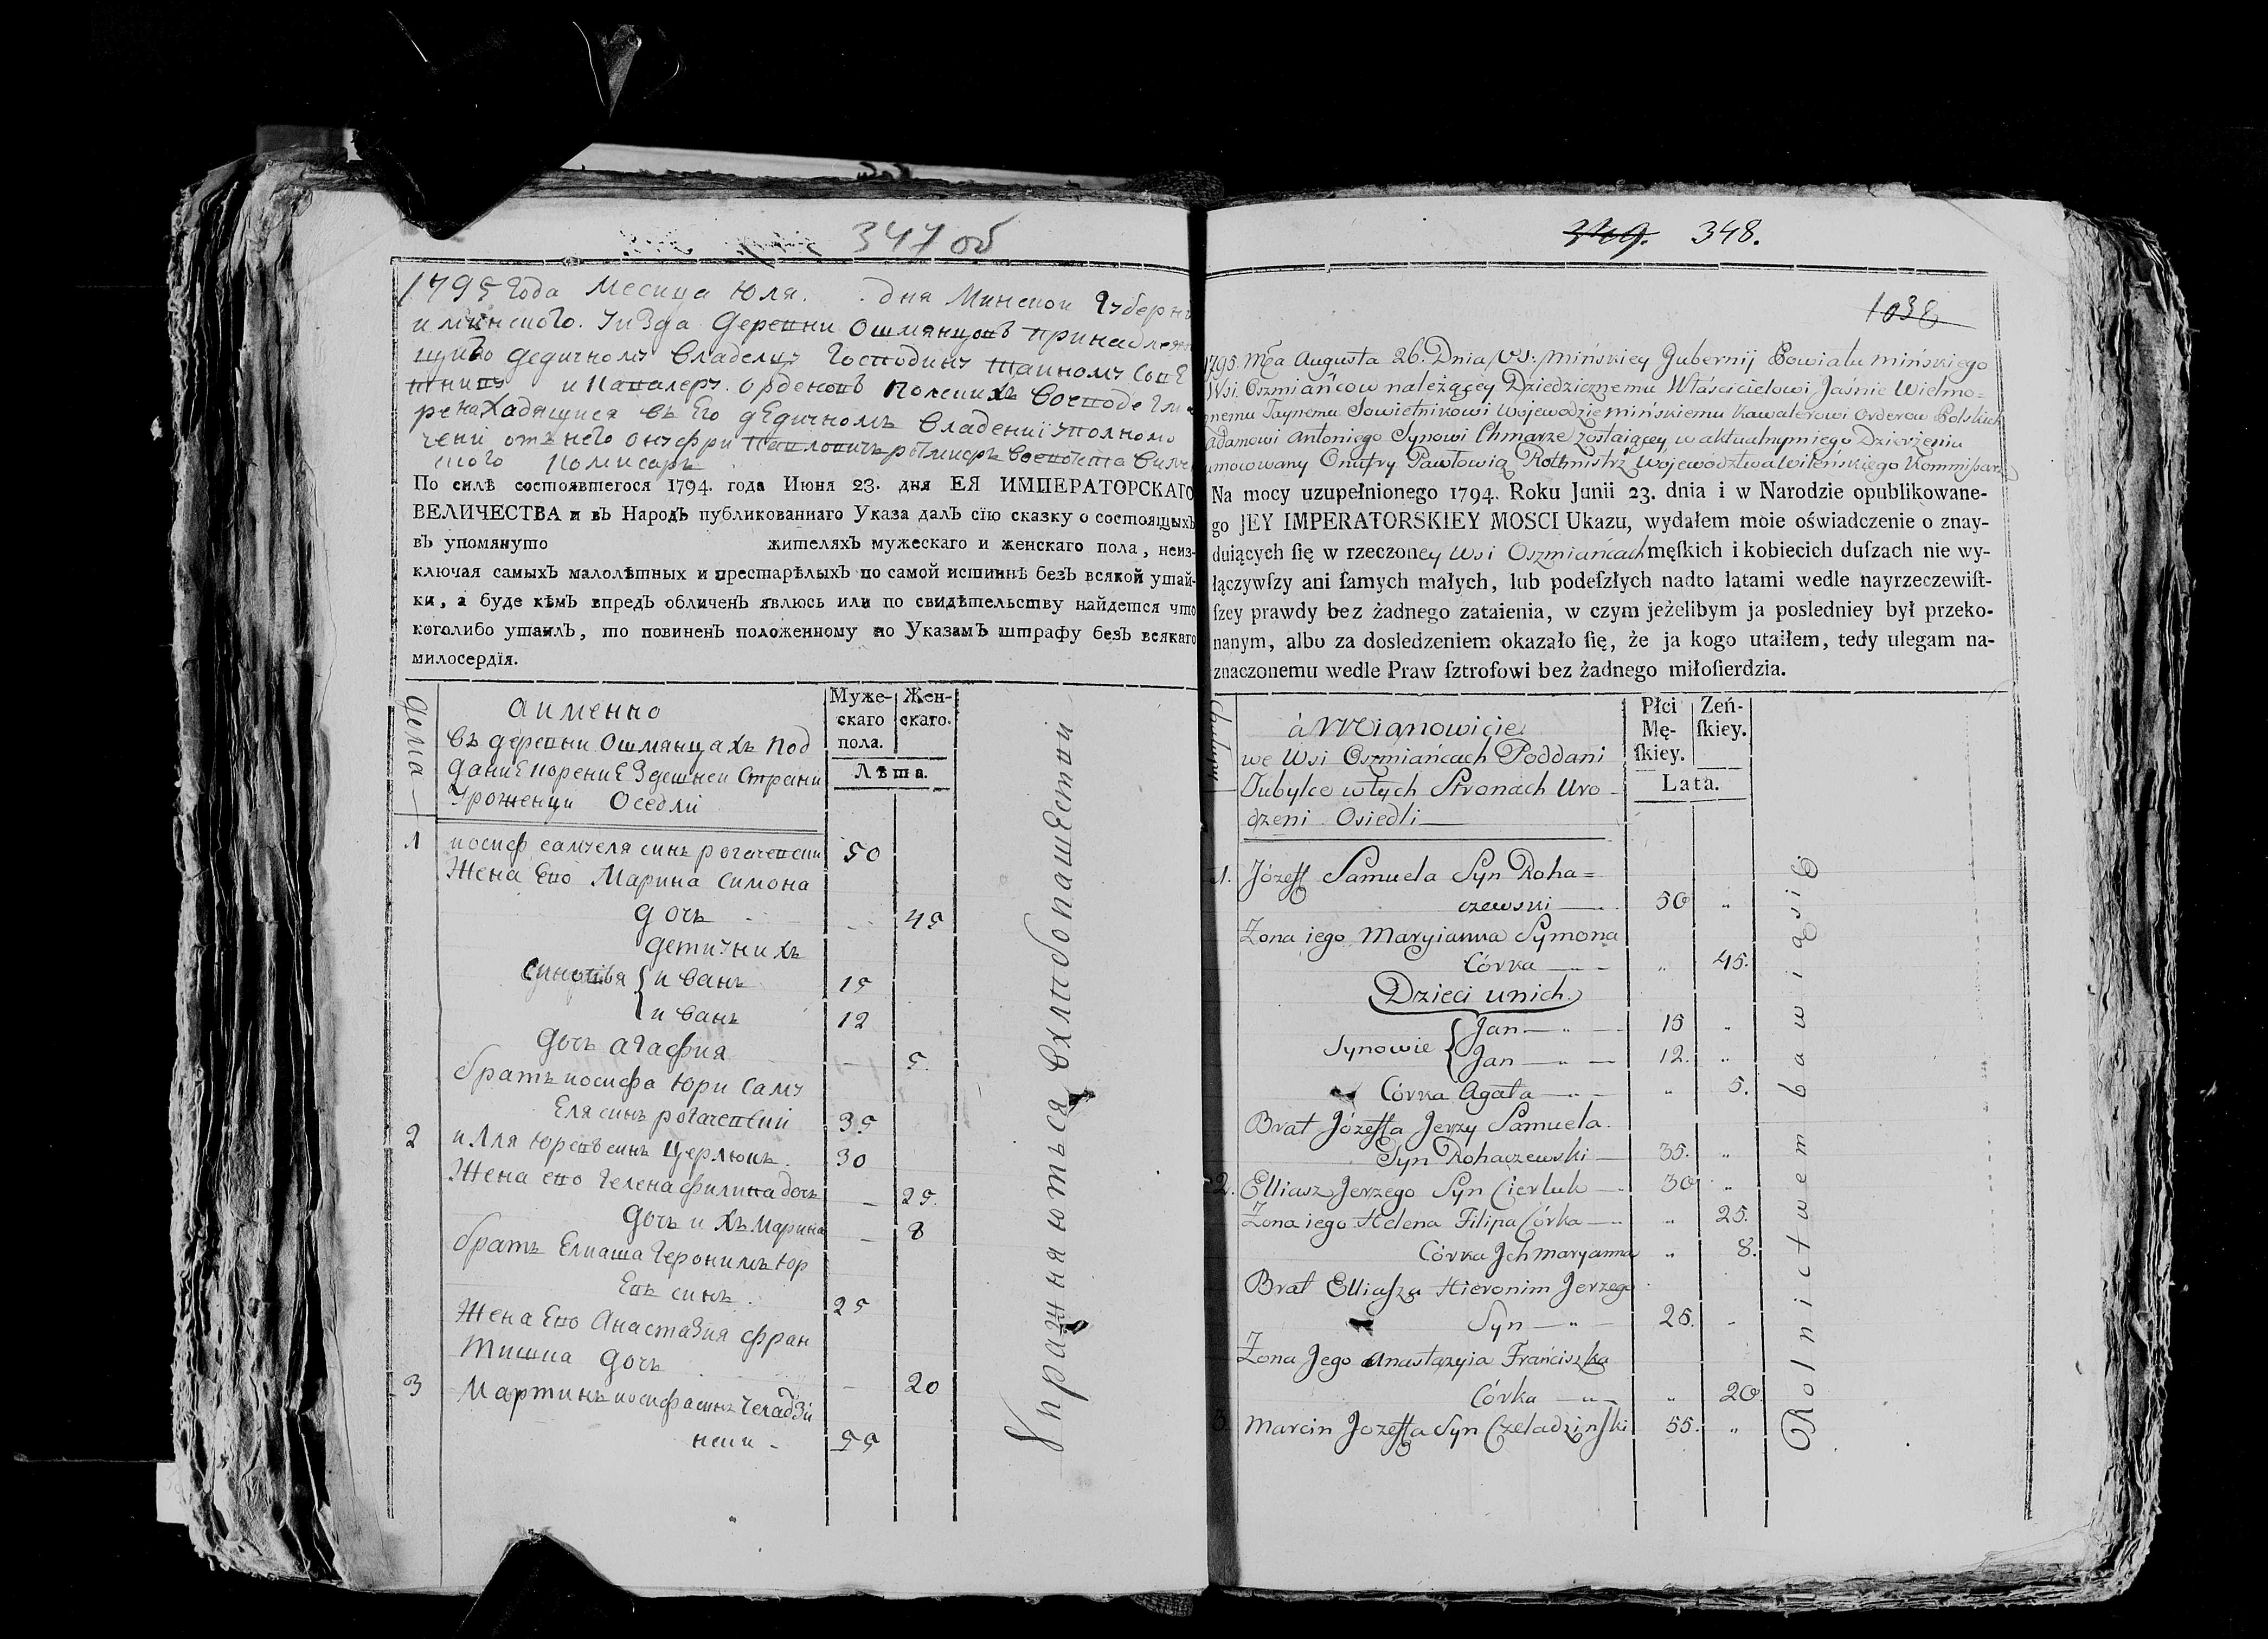 347 об
1795 Года Месяца Юля. дня Минской Губернѣ
и минского. Уизда Деревни Ошмянцовъ принадлежа
дедичному Владелцу Господину Тайному
и Кавалеру. Орденовъ Полскихъ
ренаходящися въ Его дедичномъ Владении уполномо
чени отъ него онуфри Павловичъ
ского Комисаръ
По силѣ состоявшегося 1794. года Июня 23. дня ЕЯ ИМПЕРАТОРСКАГО
ВЕЛИЧЕСТВА и въ Народъ публикованнаго Указа далъ сїю сказку о состоящыхъ
въ упомянуто жителяхъ мужескаго и женскаго пола, неиз-
ключая самыхъ малолѣтныхъ и престарѣлыхъ по самой истиннѣ безъ всякой утай-
ки, а буде кѣмъ впредъ обличенъ явлюсь или по свидѣтельству найдется что
коголибо утаилъ, то повиненъ положенному по Указамъ штрафу безъ всякаго
милосердїя.
Дома
аименно
въ деревни Ошмянцахъ Под
дание корение Здешней Страни
Уроженци Оседли
Муже-
скаго
пола.
Жен-
скаго.
Лѣта.
1 иосиф самуеля синъ рогачевски 50
Жена Ево Марина Симона
дочь 45
дети унихъ
Синовья { иванъ 15
иванъ 12
дочъ агафия 5.
братъ иосифа Юри Саму
Еля синъ рогачевский 35
2 илля Юревъ синъ Церлюкъ. 30
Жена ево Гелена филипа дочъ 25.
дочъ ихъ Марина 8
братъ Елиаша Геронимъ Юр
Евъ синъ. 25
Жена Ево Анастазия фран
тишка дочъ 20
3 Мартинъ иосифа синъ Челадзи
нски - 55
Упражняються вхлибопашестви
349. 348.
1038
1795. Mca Augusta 26. Dnia /VS:/ Mińskiey Gubernij Powiatu mińskiego
Wsi. Oszmiańcow należącey Dziedzicznemu Właścicielowi Jaśnie Wielmo-
żnemu Taynemu Sowietnikowi Wojewodzie mińskiemu Kawalerowi Orderow Polskich
Adamowi Antoniego Synowi Chmarze zostaiącey w aktualnym iego Dzierżeniu
umocowany Onufry Pawłowicz Rothmistrz Wojewodztwa Wileńskiego Kommissarz
Na mocy uzupełnionego 1794. Roku Junii 23. dnia i w Narodzie opublikowane-
go JEY IMPERATORSKIEY MOSCI Ukazu, wydałem moie oświadczenie o znay-
duiących ſię w rzeczoney Wsi Oszmiańcach męſkich i kobiecich duſzach nie wy-
łączywſzy ani ſamych małych, lub podeſzłych nadto latami wedle nayrzeczewiſt-
ſzey prawdy bez żadnego zataienia, w czym jeżelibym ja posledniey był przeko-
nanym, albo za dosledzeniem okazało ſię, że ja kogo utaiłem, tedy ulegam na-
znaczonemu wedle Praw ſztrofowi bez żadnego miłoſierdzia.
à Mianowicie
we Wsi Oszmiańcach Poddani
Tubylce w tych Stronach Uro-
dzeni Osiedli
Płci
Mę-
ſkiey.
Zeń-
ſkiey.
Lata.
1. Józeff Samuela Syn Roha=
czewski 50 "
Zona iego Maryianna Symona
Córka " 45.
Dzieci unich.
Synowie { Jan 15 "
Jan 12. "
Córka Agata " 5.
Brat Józeffa Jerzy Samuela.
Syn Rohaczewski 35. "
2. Elliasz Jerzego Syn Cierluk 30 "
Zona iego Helena Filipa Córka " 25.
Córka Jch Maryanna " 8.
Brat Elliasza Hieronim Jerzego
Syn 25. "
Zona Jego Anastazyia Franciszka
Córka " 20
3. Marcin Jozeffa Syn Czeladzinſki 55. "
Rolnictwem bawią się